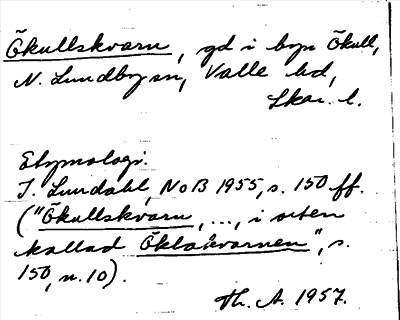 Ökullskvarn, gd i byn Ökull,
N. Lundby sn, Valle hd,
Skar. l.
Etymologi.
I. Lundahl, NoB 1955, s. 150 ff.
("Ökullskvarn, ..., i orten
kallad Öklakvarnen", s.
150, n. 10).
Th. A. 1957.